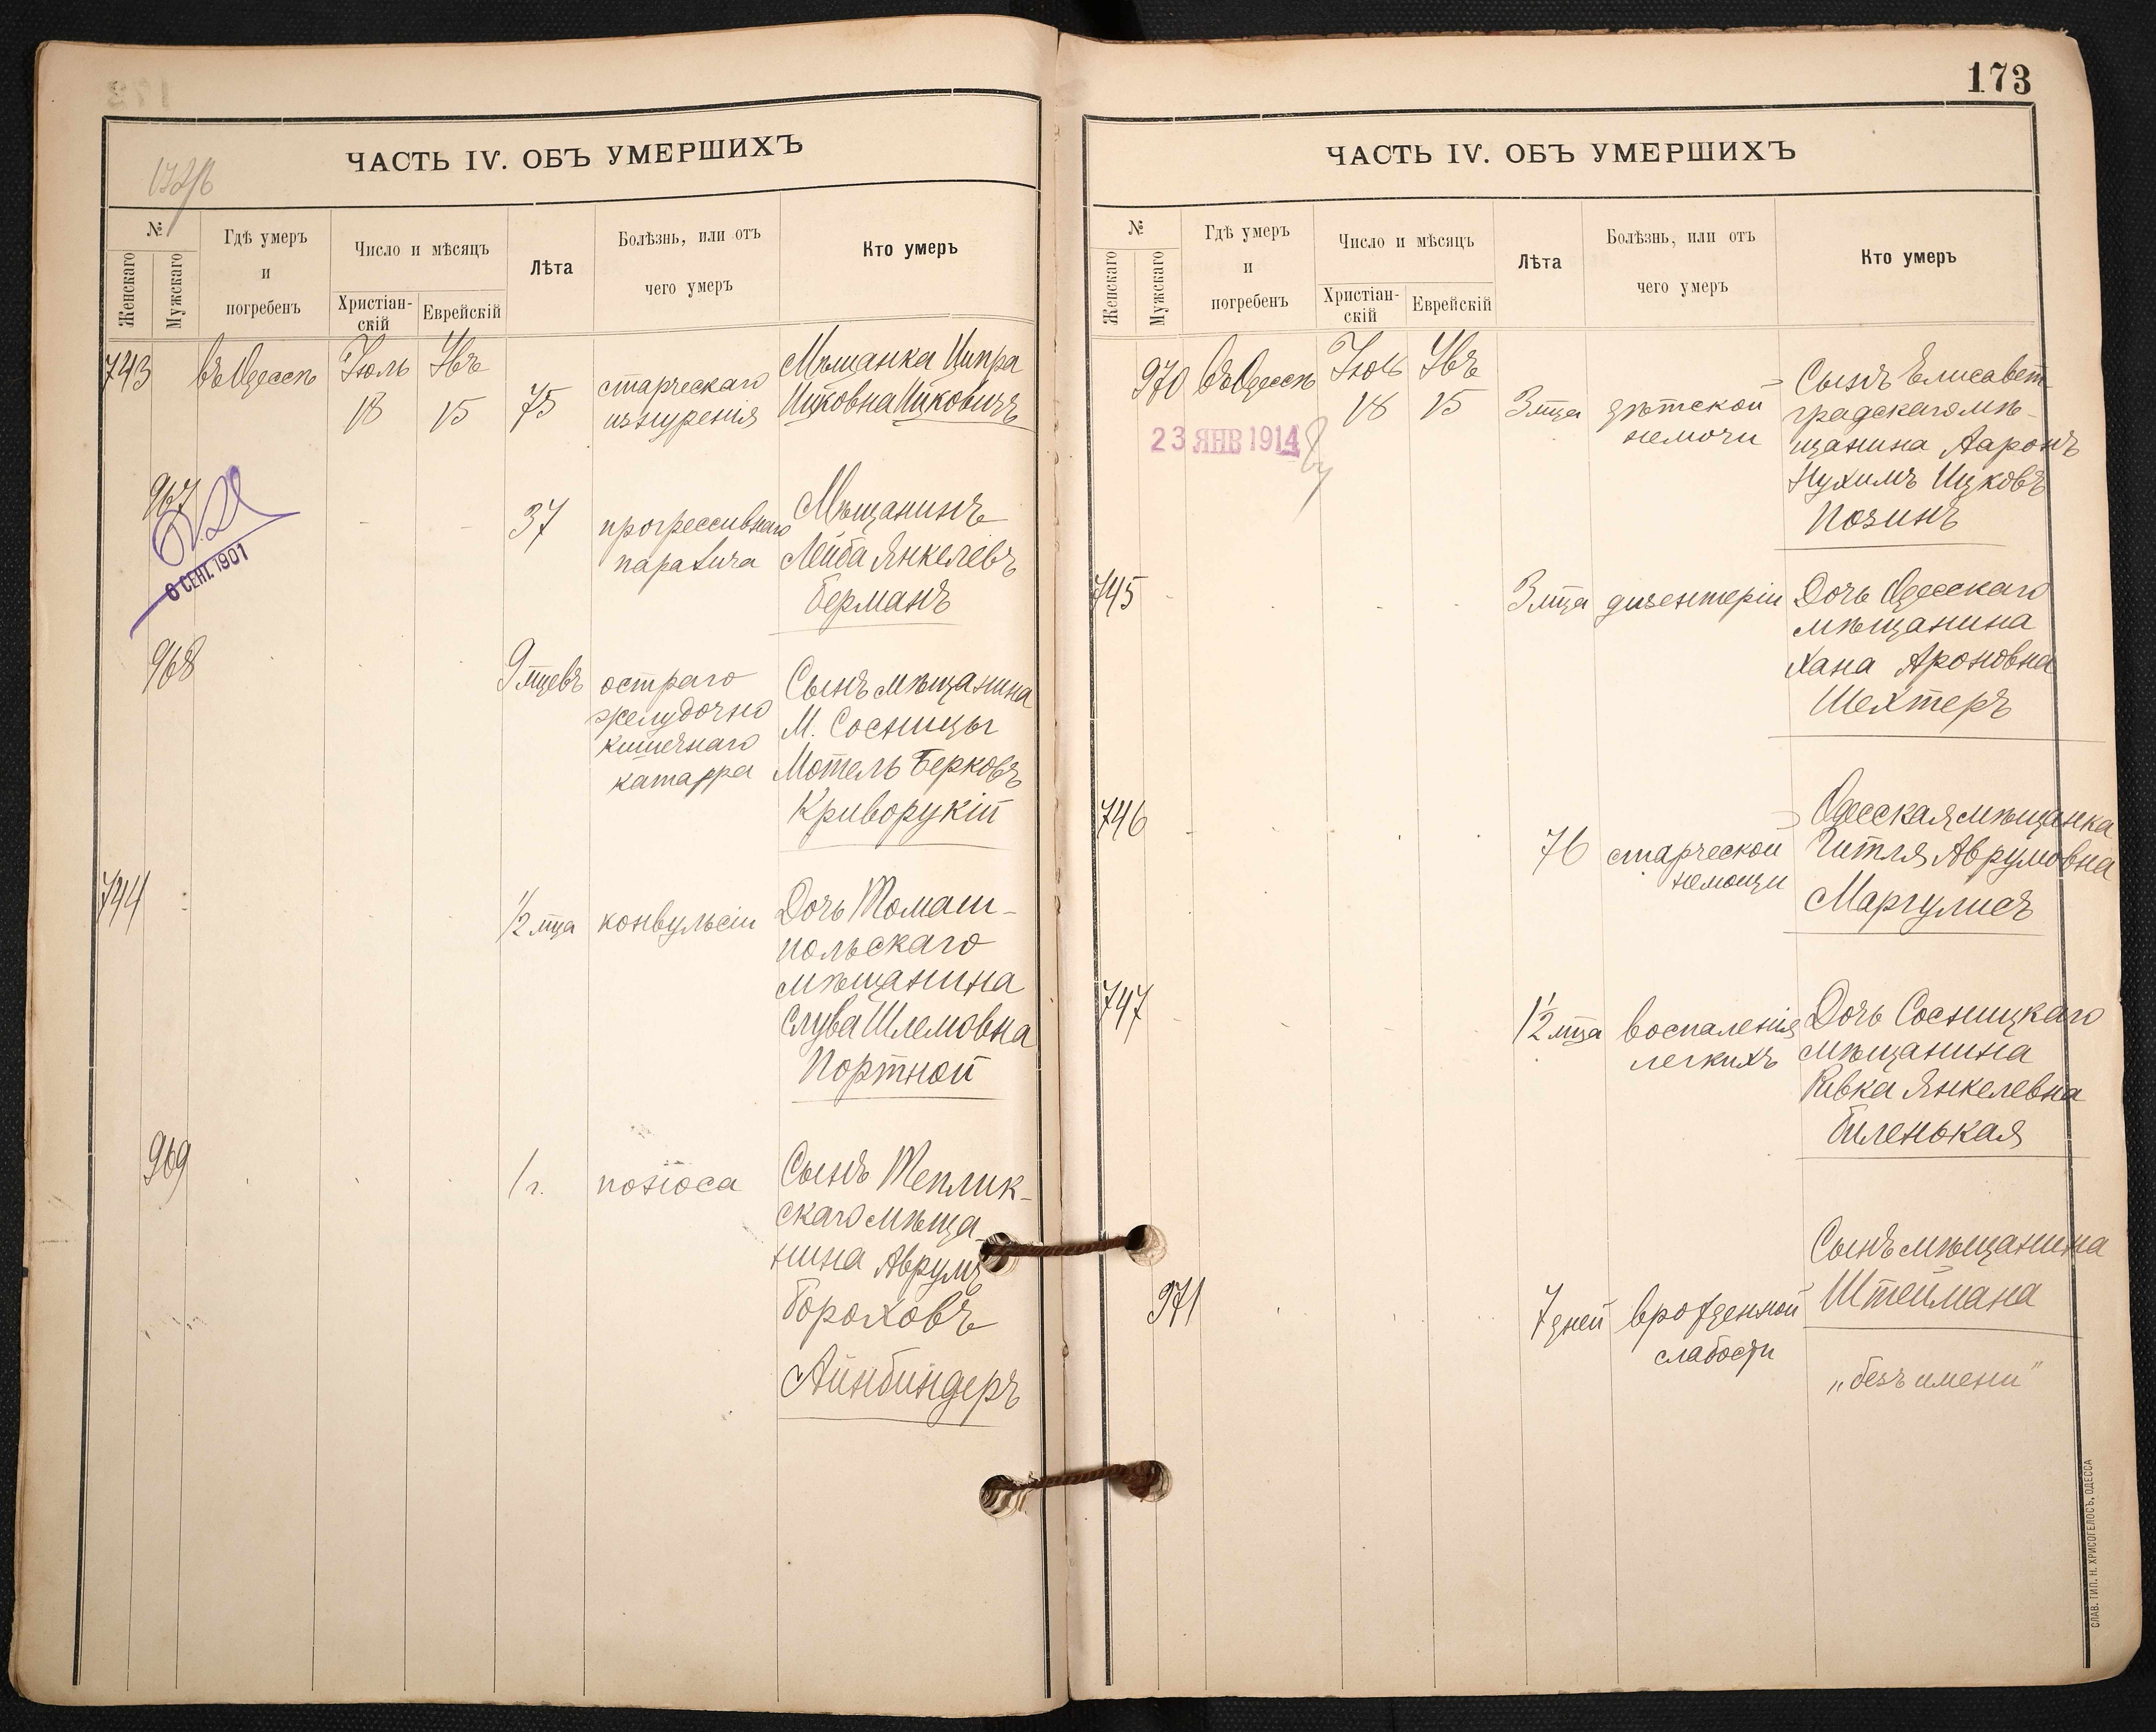 ЧАСТЬ IV. ОБЪ УМЕРШИХЪ
№
Женскаго
Мужскаго
Гдѣ умеръ
и
погребенъ
Число и мѣсяцъ
Христіан-
скій
Еврейскій
Лѣта
Болѣзнь, или отъ
чего умеръ
Кто умеръ
743
въ Одессѣ
Іюль
18
Увъ
15
75
старческаго
изнуренія
Мѣщанка Ципра
Ицковна Ицковичъ
967
6 СЕНТ. 1901
37
прогрессивнаго
паралича
Мѣщанинъ
Лейба Янкелевъ
Берманъ
968
9 мцевъ
остраго
желудочно
кишечнаго
катарра
Сынъ мѣщанина
М. Сосницы
Мотель Берковъ
Криворукій
744
1/2 мца
конвульсіи
Дочь Томаш-
польскаго
мѣщанина
Слува Шлемовна
Портной
969
1 г.
поноса
Сынъ Теплик-
скаго мѣща-
нина Аврумъ
Бороховъ
Айнбиндеръ
173
ЧАСТЬ IV. ОБЪ УМЕРШИХЪ
№
Женскаго
Мужскаго
Гдѣ умеръ
и
погребенъ
Число и мѣсяцъ
Христіан-
скій
Еврейскій
Лѣта
Болѣзнь, или отъ
чего умеръ
Кто умеръ
970
въ Одессѣ
Іюль
18
Увъ
15
23 ЯНВ 1914
3 мца
дѣтской
немочи
Сынъ Елисавет
градскаго мѣ-
щанина Ааронъ
Нухимъ Ицковъ
Позинъ
745
3 мца
дизентеріи
Дочь Одесскаго
мѣщанина
Хана Ароновна
Шехтеръ
746
76
старческой
немощи
Одесская мѣщанка
Гитля Аврумовна
Маргулисъ
747
1 1/2 мца
воспаленія
легкихъ
Дочь Сосницкаго
мѣщанина
Ривка Янкелевна
Биленькая
971
7 дней
врожденной
слабости
Сынъ мѣщанина
Штеймана
„безъ имени"
СЛАВ. ТИП. Н. ХРИСОГЕЛОСЪ, ОДЕССА